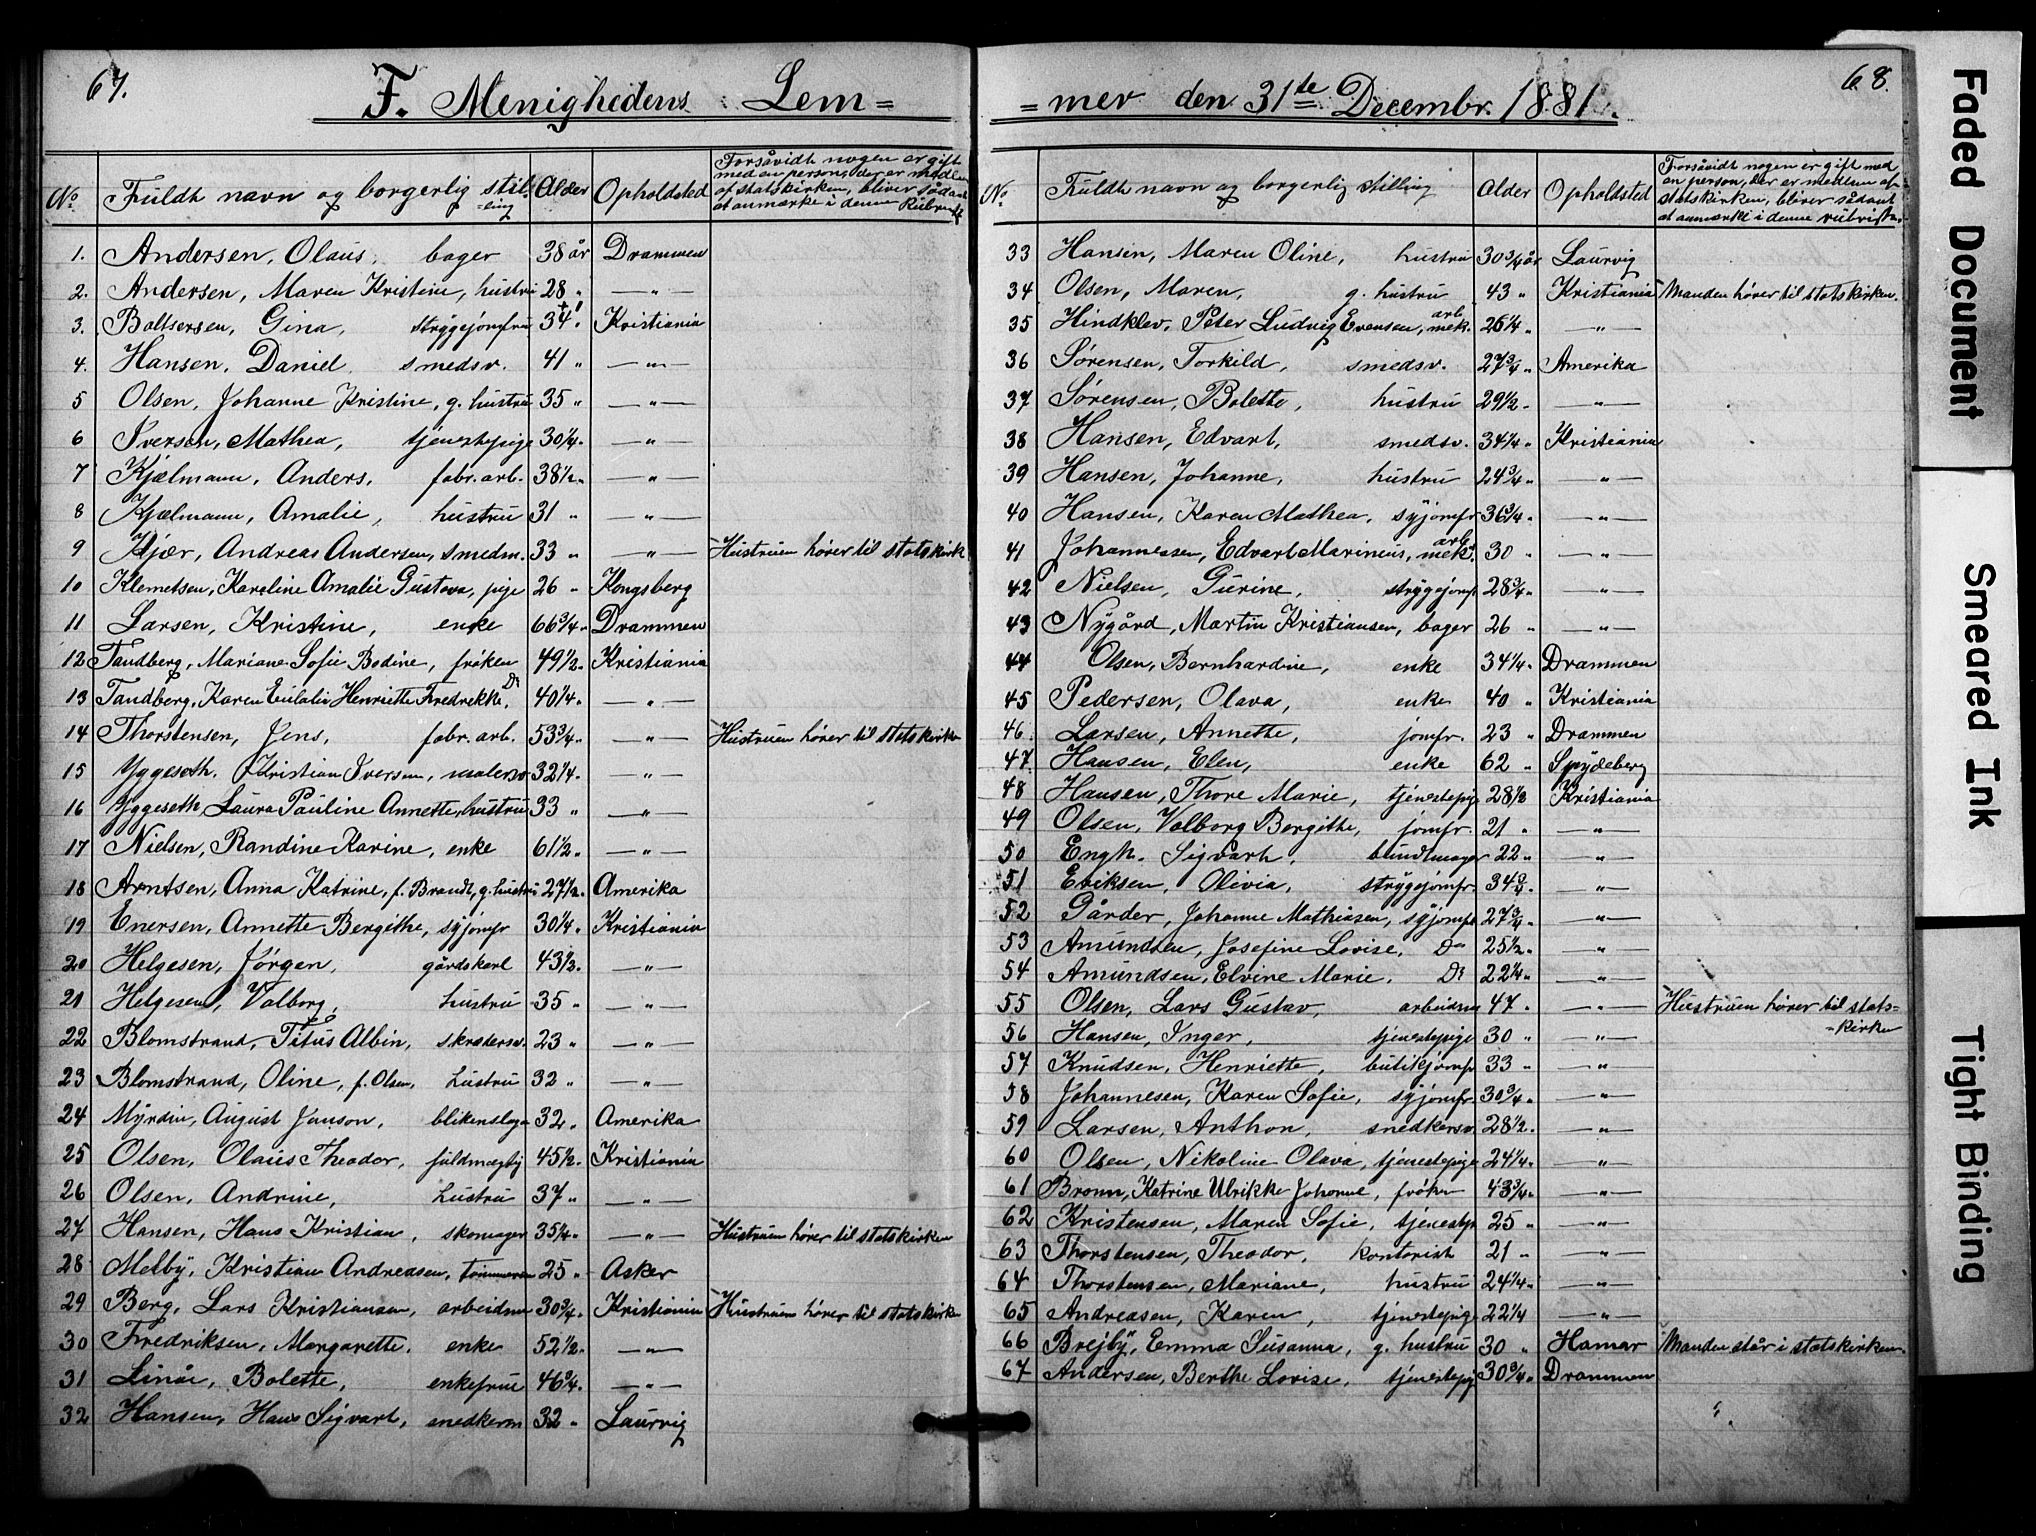 67.
F. Menighedens Lem=
No Fuldt navn og borgerlig stil=ling Alder Opholdsted Forsåvidt nogen er gift med en person, der er medlem af statskirken, bliver sådant at anmærke i denne Rubrik
1. Andersen, Olaus, bager 38 år Drammen
2. Andersen, Maren Kristine, hustru 28 " — " —
3. Baltsersen, Gina, strygejomfru 34 " Kristiania
4. Hansen, Daniel, smedsv. 41 " — " —
5 Olsen, Johanne Kristine, g. hustru 35 " — " —
6 Iversen, Mathea, tjenestepige 30¼ " — " —
7 Kjælmann, Anders, fabr. arb. 38½ " — " —
8 Kjælmann, Amalie, hustru 31 " — " —
9 Kjær, Andreas Andersen, smedm. 33 " — " — Hustruen hører til statskirk
10 Klemetsen, Karoline Amalie Gustava, pige 26 " Kongsberg
11 Larsen, Kristine, enke 66¾ " Drammen
12 Tandberg, Mariane Sofie Bodine, frøken 49½ " Kristiania
13 Tandberg, Karen Eulalia Henriette Fredrekke, Do 40¼ " — " —
14 Thorstensen, Jens, fabr. arb. 53¾ " — " — Hustruen hører til statskirke
15 Yggeseth, Kristian Iversen, malersv 32¼ " — " —
16 Yggeseth, Laura Pauline Annette, hustru 33 " — " —
17 Nielsen, Randine Karine, enke 61½ " — " —
18 Arntsen, Anna Katrine, f. Brandt, g. hustru 27½ " Amerika
19 Enersen, Annette Bergithe, syjomfr 30¼ " Kristiania
20 Helgesen, Jørgen, gårdskarl 43½ " — " —
21 Helgesen, Valborg, hustru 35 " — " —
22 Blomstrand, Titus Albin, skrædersv. 23 " — " —
23 Blomstrand, Oline, f. Olsen, hustru 32 " — " —
24 Myrdin, August Jonson, blikenslager 32 " Amerika
25 Olsen, Olaus Theodor, fuldmægtig 45½ " Kristiania
26 Olsen, Andrine, hustru 37 " — " —
27 Hansen, Hans Kristian, skomager 35¼ " — " — Hustruen hører til statskirken
28 Melby, Kristian Andreasen, tømmerm 25 " Asker
29 Berg, Lars Kristiansen, arbeidsm 30¾ " Kristiania Hustruen hører til statskirke
30 Fredriksen, Margarette, enke 52½ " — " —
31 Linåe, Bolette, enkefrue 46¾ " — " —
32 Hansen, Hans Sigvart, snedkerm 32 " Laurvig
68.
=mer den 31te Decembr. 1881.
No. Fuldt navn og borgerlig stilling Alder Opholdsted Forsåvidt nogen er gift med en person, der er medlem af statskirken, bliver sådant at anmærke i denne rubrik
33 Hansen, Maren Oline, hustru 30¾ år Laurvig
34 Olsen, Maren, g. hustru 43 " Kristiania Manden hører til statskirken.
35 Hindklev, Peter Ludvig Evensen, mek. arb 26¼ " — " —
36 Sørensen, Torkild, smedsv. 27¾ " Amerika
37 Sørensen, Bolette, hustru 29½ " — " —
38 Hansen, Edvart, smedsv. 34¼ " Kristiania
39 Hansen, Johanne, hustru 24¾ " — " —
40 Hansen, Karen Mathea, syjomfr 36¾ " — " —
41 Johannesen, Edvart Marinius, mek. arb. 30 " — " —
42 Nielsen, Gurine, strygejomf 28¾ " — " —
43 Nygård, Martin Kristiansen, bager 26 " — " —
44 Olsen, Bernhardine, enke 34¼ " Drammen
45 Pedersen, Olava, enke 40 " Kristiania
46. Larsen, Annette, jomfr. 23 " Drammen
47. Hansen, Elen, enke 62 " Spydeberg
48 Hansen, Thore Marie, tjenestepige 28½ Kristiania
49 Olsen, Valborg Bergithe, jomfr. 21 " — " —
50 Engh, Sigvart, bundtmager 22 " — " —
51 Eriksen, Olivia, strygejomfr. 34¾ " — " —
52 Gårder, Johanne Mathiasen, syjomfr 27¾ " — " —
53 Amundsen, Josefine Lovise, Do 25½ " — " —
54 Amundsen, Elvine Marie, Do 22¼ " — " —
55 Olsen, Lars Gustav, arbeidsm 47 " — " — Hustruen hører til stats=
=kirken
56 Hansen, Inger, tjenestepige 30 " — " —
57 Knudsen, Henriette, butikjomfr 33 " — " —
58 Johannesen, Karen Sofie, syjomfr 30¾ " — " —
59 Larsen, Anthon, snedkersv. 28½ " — " —
60 Olsen, Nikoline Olava, tjenestepige 24¼ " — " —
61 Bronn, Katrine Ulrikke Johanne, frøken 43¾ " — " —
62 Kristensen, Maren Sofie, tjenestp 25 " — " —
63 Thorstensen, Theodor, kontorist 21 " — " —
64 Thorstensen, Mariane, hustru 24¼ " — " —
65 Andreasen, Karen, tjenestepige 22¼ — " —
66 Brejby, Emma Susanna, g. hustru 30 " Hamar Manden står i statskirken
67 Andersen, Berthe Lovise, tjenestepig 30¾ " Drammen
Faded Document
Smeared Ink
Tight Binding